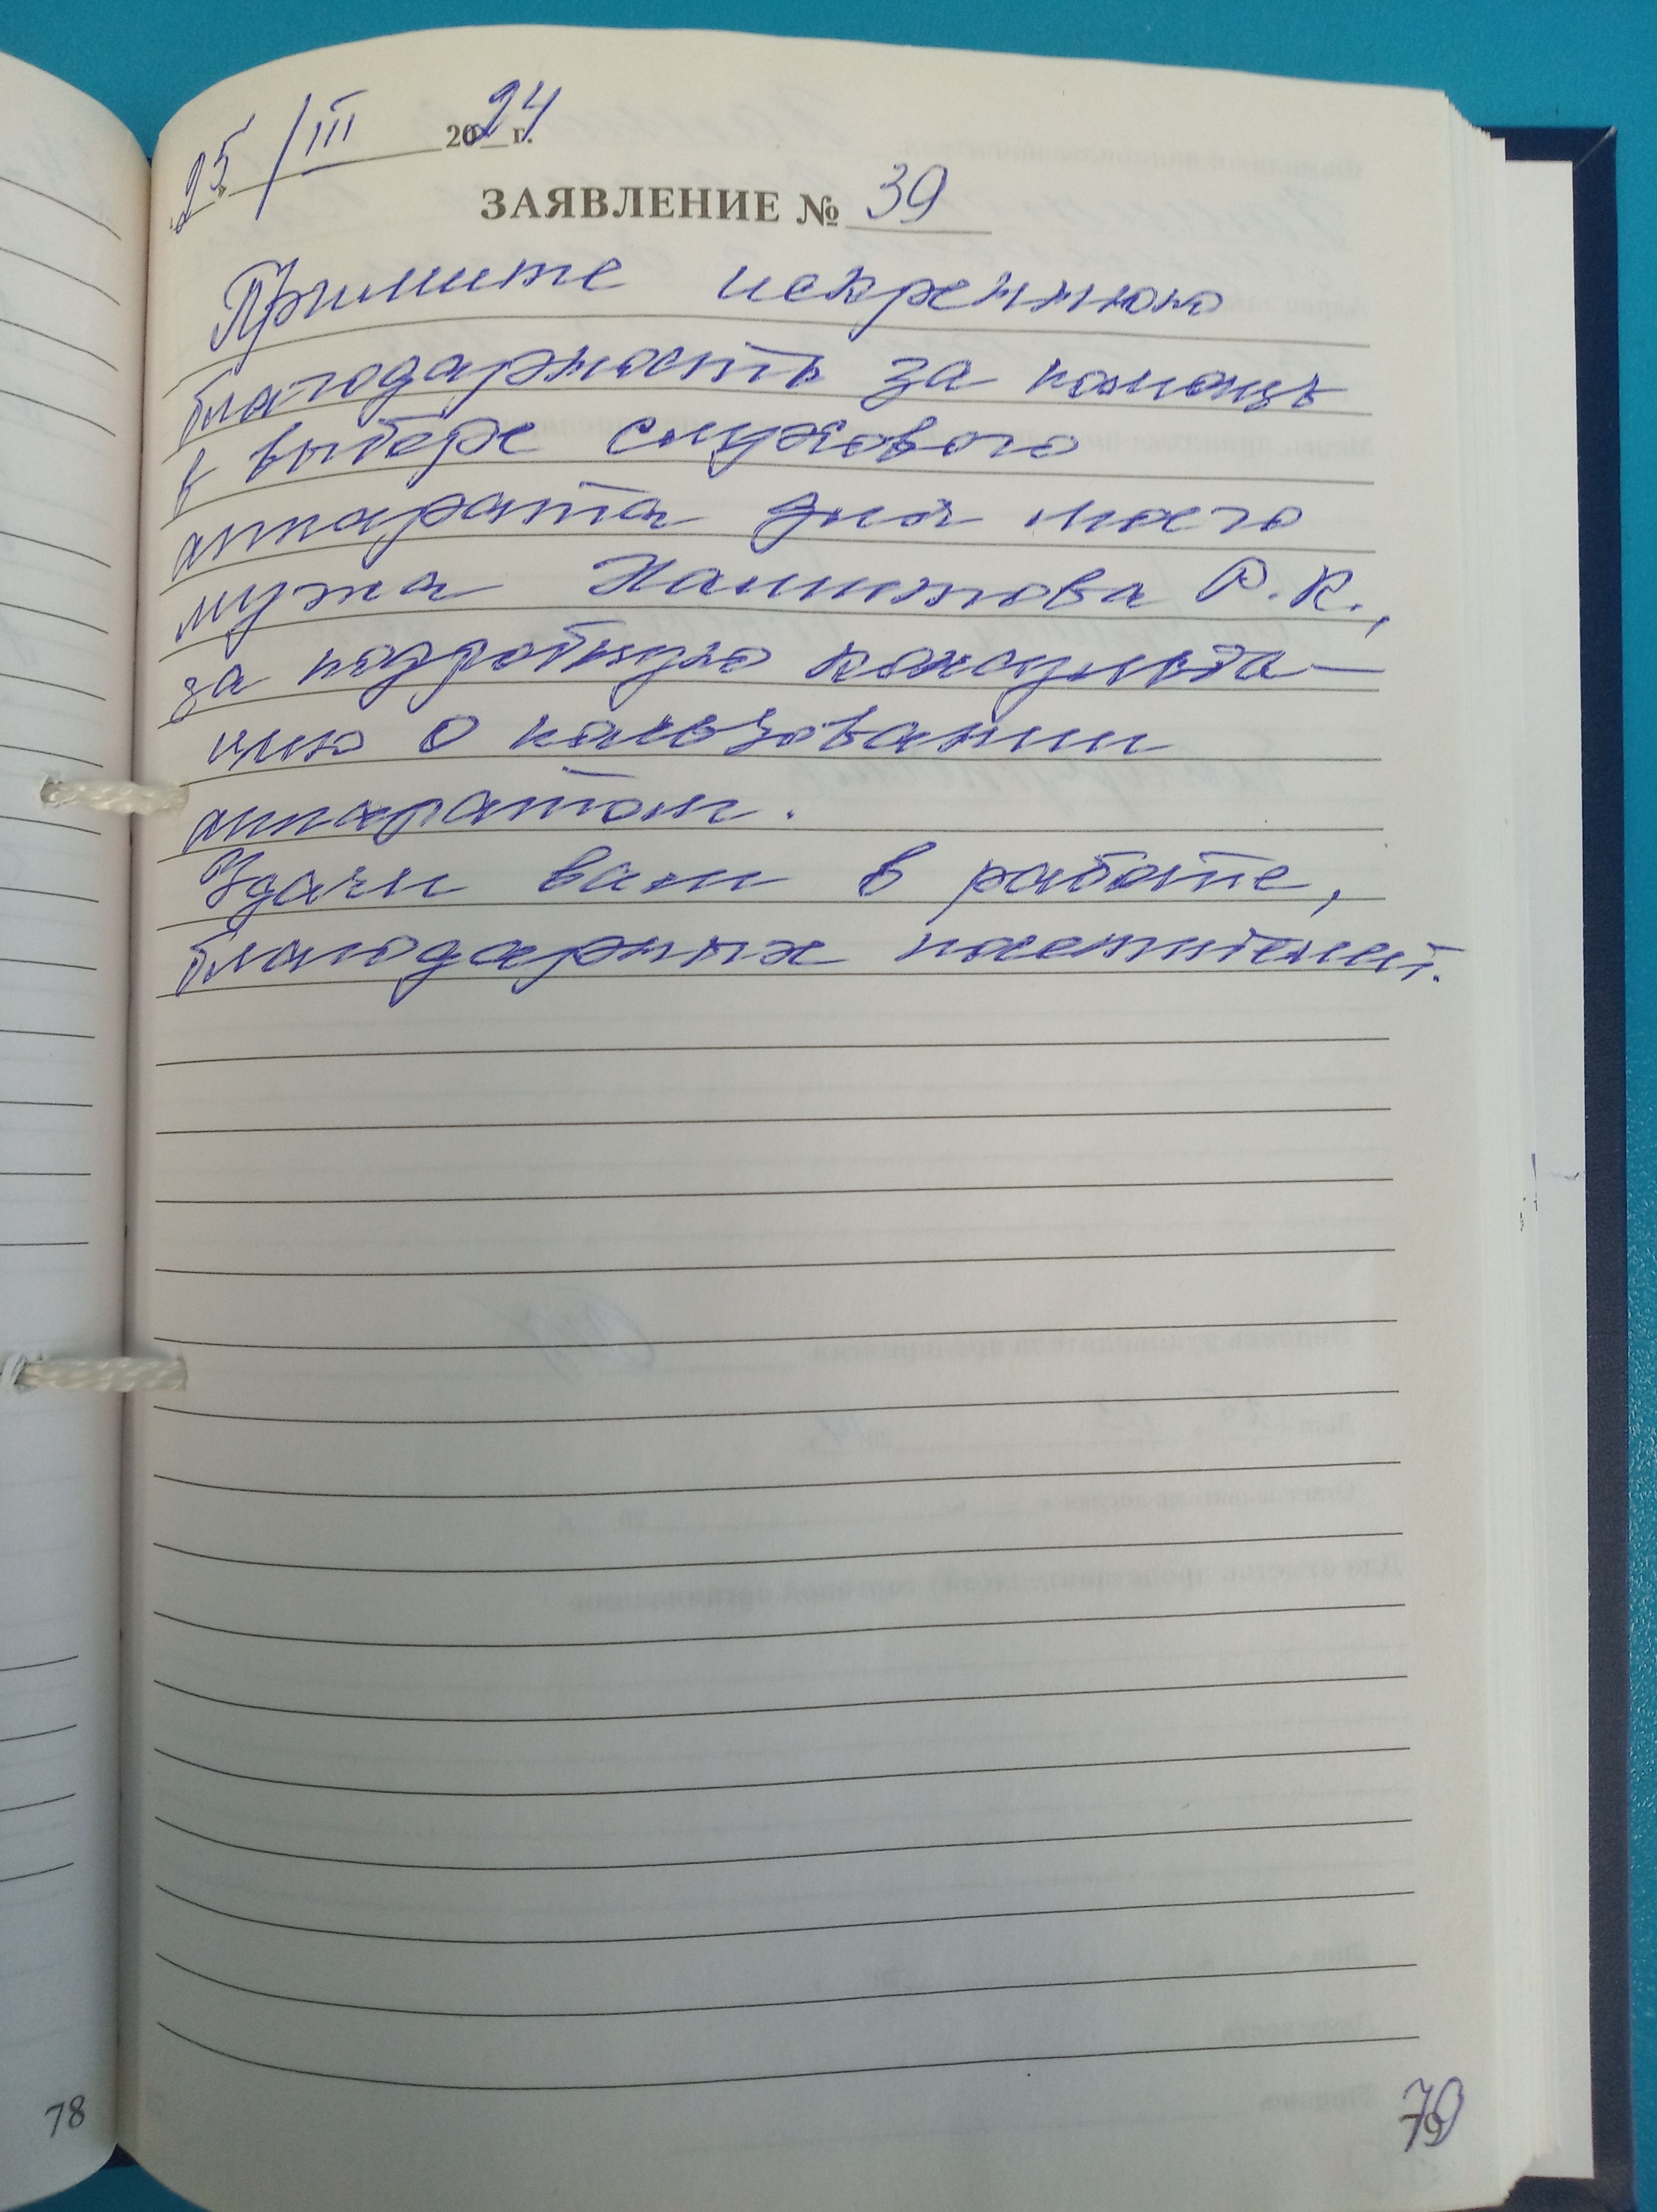 25/III 2024 г.
ЗАЯВЛЕНИЕ № 39
Примите искреннюю
благодарность за помощь
в выборе слухового
аппарата для моего
мужа Р. К.,
за подробную консульта-
цию о пользовании
аппаратом.
Удачи вам в работе,
благодарных посетителей.
78
79